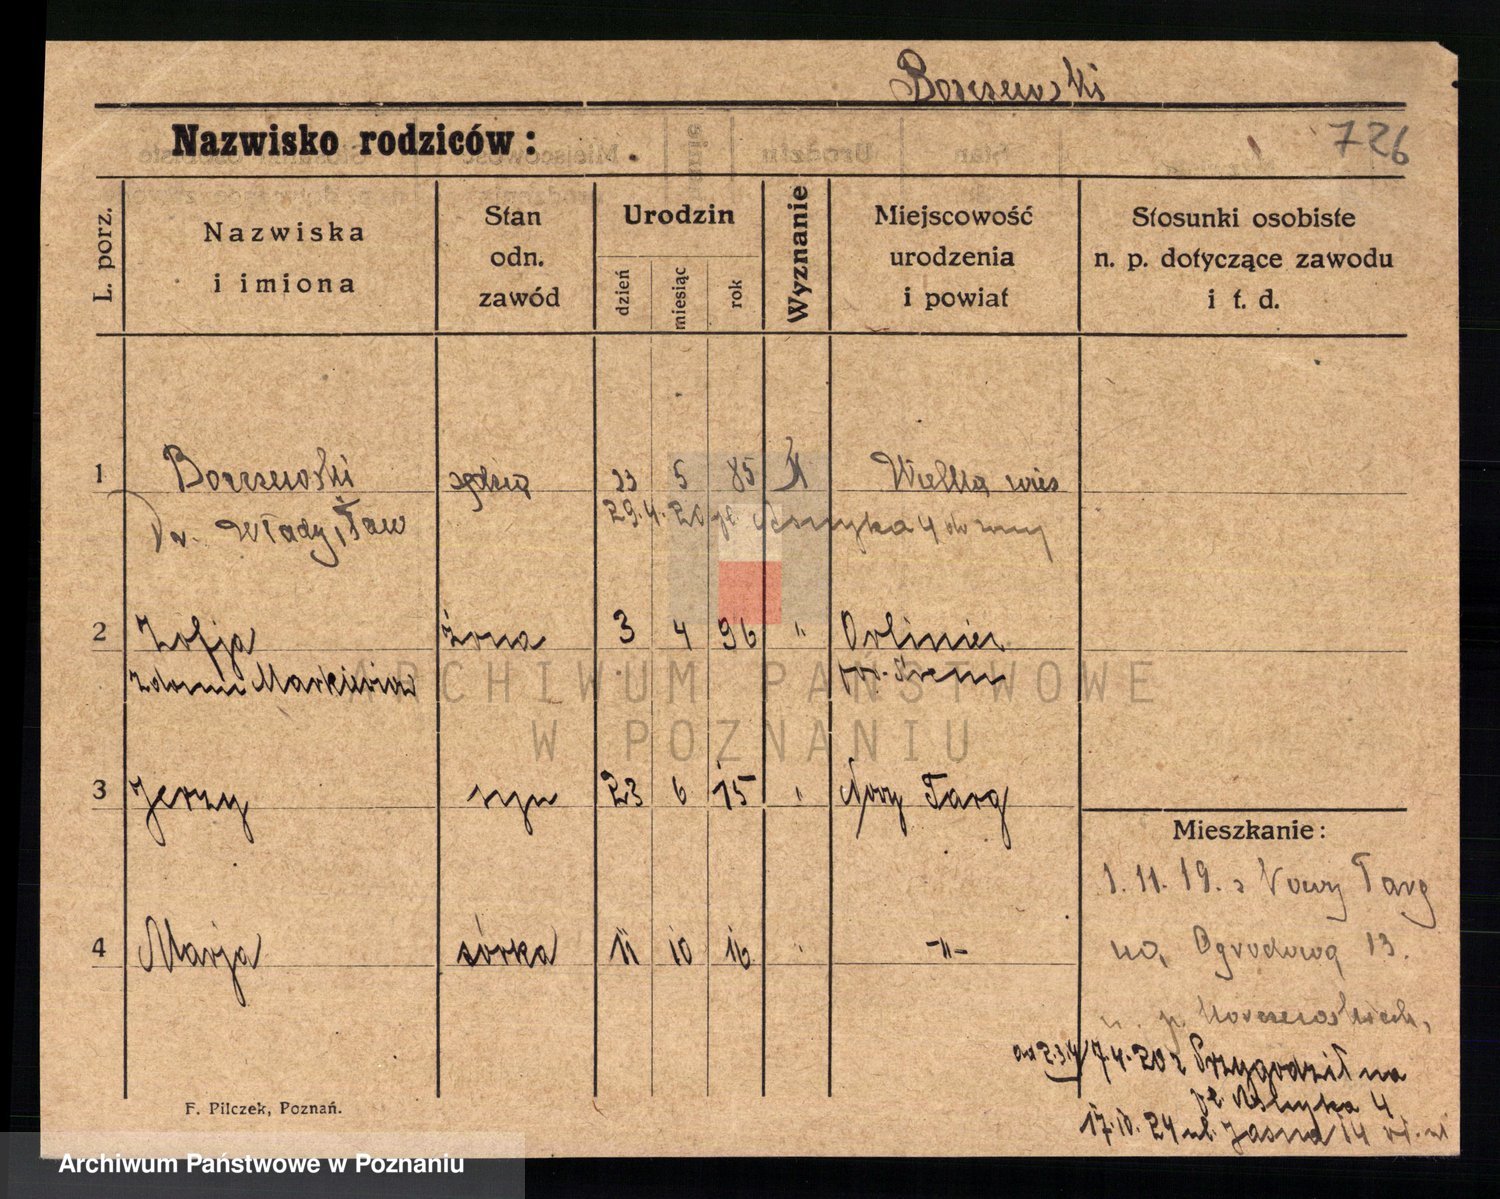 Borczewski
Nazwisko rodziców:
726
L. porz.
Nazwiska
i imiona
Stan
odn.
zawód
Urodzin
dzień
miesiąc
rok
Wyznanie
Miejscowość
urodzenia
i powiat
Stosunki osobiste
n. p. dotyczące zawodu
i t. d.
1 Borczewski sędzia 23 5 85 Wielka wieś
Dr. Władysław
29.4.20 pl Asnyka 4
2 Zofja żona 3 4 96 " Orliniec
z domu Markiewicz pow. Śrem
3 Jerzy syn 23 6 15 " Nowy Targ
Mieszkanie:
1.11.19. z Nowy Targ
4 Marja córka 11 10 16 " -"-
na Ogrodową 13.
7.4.20 z Przygodzik na
pl Asnyka 4
17.10.24 ul. Jasna 14
F. Pilczek, Poznań.
ARCHIWUM PAŃSTWOWE
W POZNANIU
Archiwum Państwowe w Poznaniu